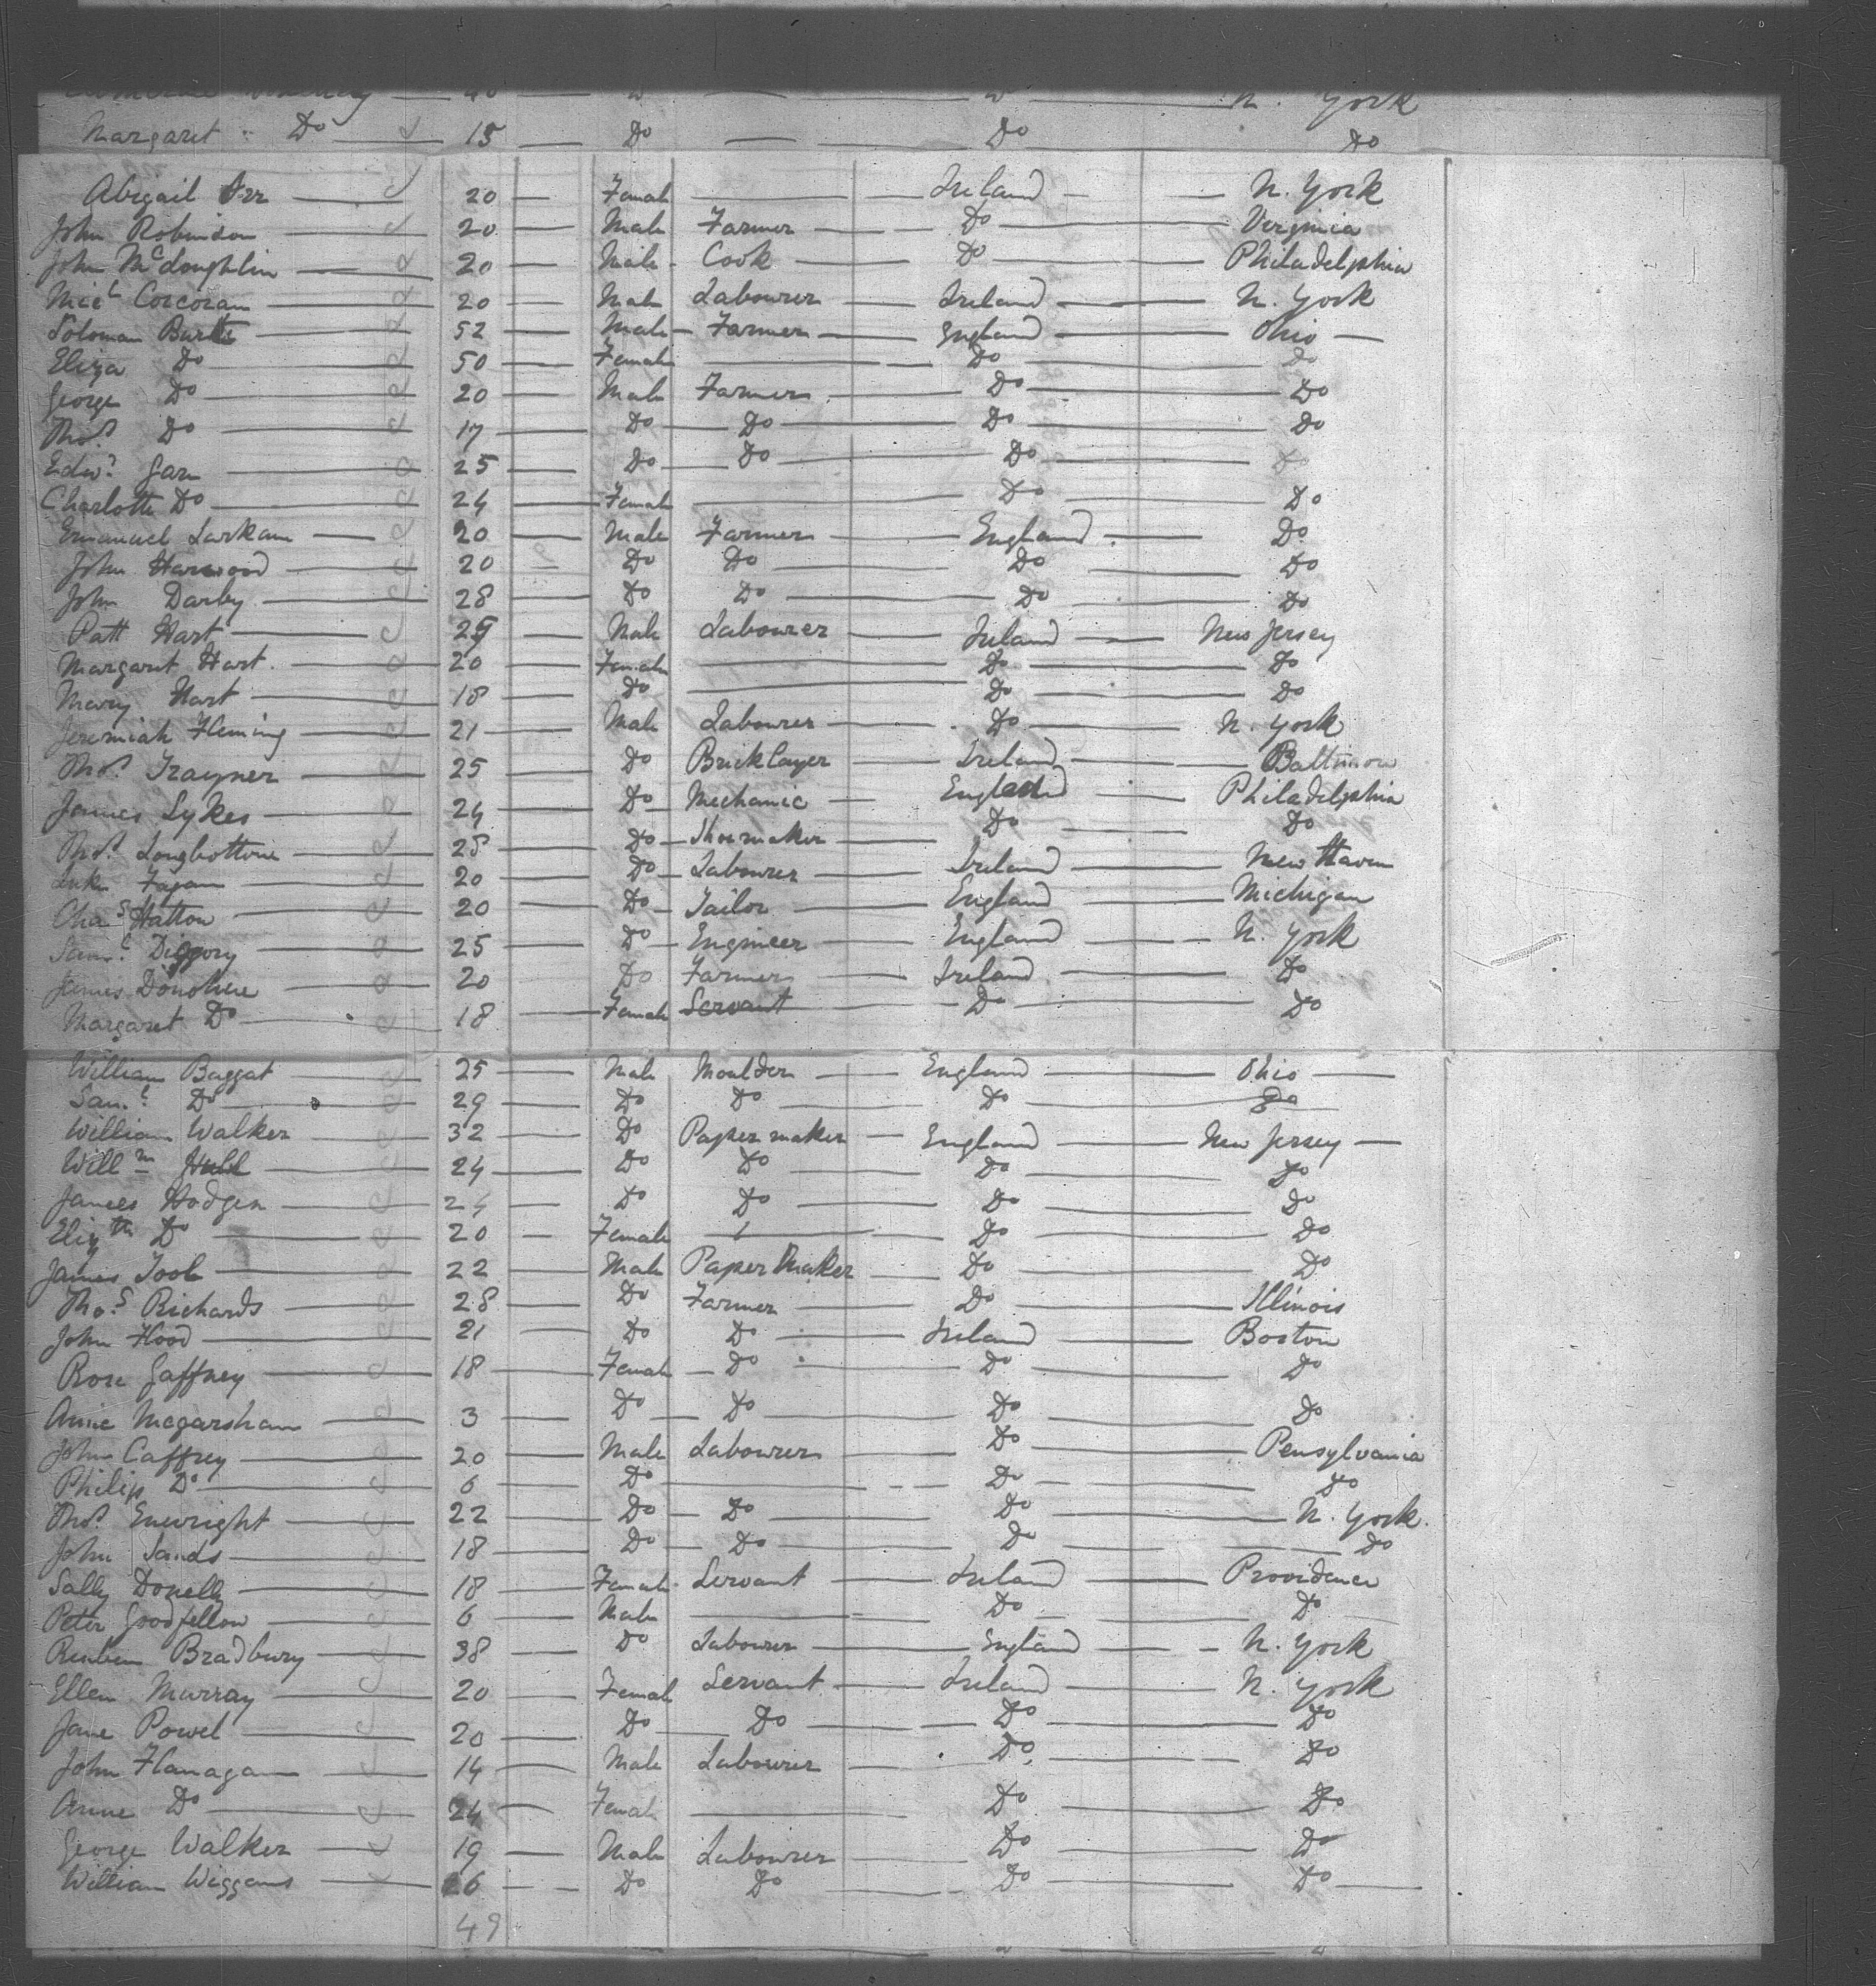 N. York
Margaret Do 15 Do Do Do
Abigail Orr 20 Female Ireland N. York
John Robinson 20 Male Farmer Do Virginia
John McLoughlin 20 Male Cook Do Philadelphia
Micl Corcoran 20 Male Labourer Ireland N. York
Soloman 52 Male Farmer England Ohio
Eliza Do 50 Female Do Do
George Do 20 Male Farmer Do Do
Thos Do 17 Do Do Do Do
Edwd Garn 25 Do Do Do Do
Charlotte Do 24 Female Do Do
Emanuel Larkam 20 Male Farmer England Do
John Harwood 20 Do Do Do Do
John Darby 28 Do Do Do Do
Patt Hart Male Labourer Ireland New Jersey
Margaret Hart 20 Female Do Do
Mary Hart 18 Do Do Do
Jeremiah Fleming 21 Male Labourer Do N. York
Thos Trayner 25 Do Bricklayer Ireland Baltimore
James Sykes 24 Do Mechanic England Philadelphia
Thos Longbottom 28 Do Shoemaker Do Do
Luke Fagan 20 Do Labourer Ireland New Haven
Chas Hatton 20 Do Tailor England Michigan
Saml Diggory 25 Do Engineer England N. York
James Donohue 20 Do Farmer Ireland Do
Margaret Do 18 Female Servant Do Do
William Baggat 25 Male Moulder England Ohio
Saml Do 29 Do Do Do Do
William Walker 32 Do Paper maker England New Jersey
Willm Hull 24 Do Do Do Do
James Hodgen 24 Do Do Do Do
Elizth Do 20 Female Do Do
James Toole 22 Male Paper Maker Do Do
Thos Richards 28 Do Farmer Do Illinois
John Flood 21 Do Do Ireland Boston
Rose Gaffney 18 Female Do Do Do
Annie Magarsham 3 Do Do Do Do
John Caffrey 20 Male Labourer Do Pensylvania
Philip Do 6 Do Do Do
Thos Enwright 22 Do Do Do N. York
John Sands 18 Do Do Do Do
Sally Donelly 18 Female Servant Ireland Providence
Peter Goodfellow 6 Male Do Do
Reuben Bradbury 38 Do Labourer England N. York
Ellen Murray 20 Female Servant Ireland N. York
Jane Powel 20 Do Do Do Do
John Flanagan 14 Male Labourer Do Do
Anne Do 24 Female Do Do
George Walker 19 Male Labourer Do Do
William Wiggans 26 Do Do Do Do
49